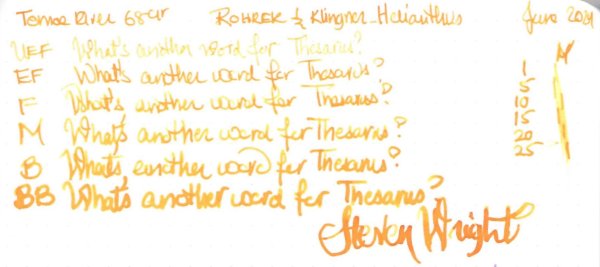 Tomoe River 68gr ROHRER & Klingner - Helianthus June 2021
M
UEF What's another word for Thesarus?
EF What's another word for Thesarus? 1
5
F What's another word for Thesarus? 10
15
M What's another word for Thesarus? 20
25
B What's another word for Thesarus?
BB What's another word for Thesarus?
Steven Wright